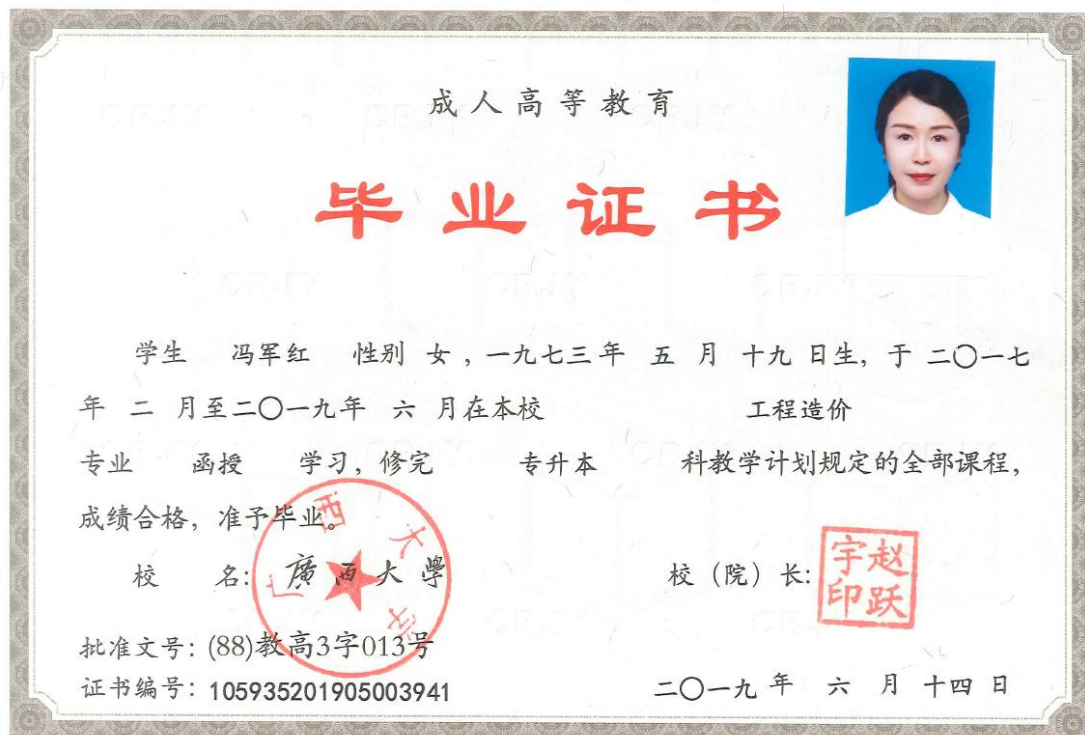 成人高等教育
毕业证书
学生 冯军红 性别 女，一九七三年 五 月 十九 日生，于 二〇一七
年 二 月至二〇一九年 六 月在本校 工程造价
专业 函授 学习，修完 专升本 科教学计划规定的全部课程，
成绩合格，准予毕业。
校 名：廣西大學
广西大学
校（院）长：
赵跃宇印
批准文号：(88)教高3字013号
证书编号：105935201905003941
二〇一九 年 六 月 十四 日